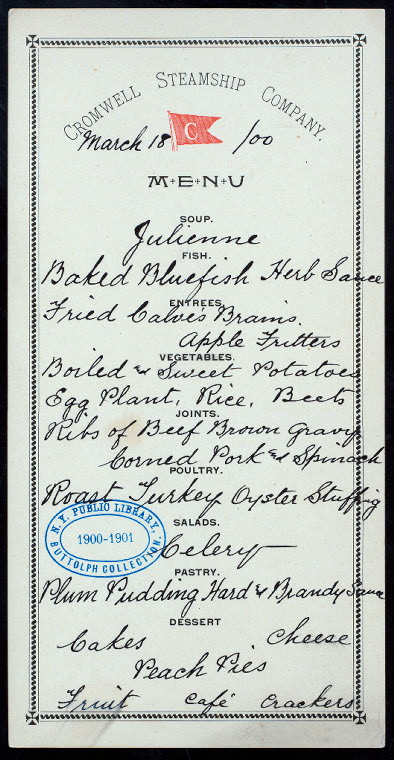 CROMWELL STEAMSHIP COMPANY.
March 18 C /00
M+E+N+U
SOUP.
Julienne
FISH.
Baked Bluefish Herb Sauce
ENTREES.
Fried Calve's Brains
Apple Fritters
VEGETABLES.
Boiled and Sweet Potatoes
Egg Plant, Rice, Beets
JOINTS.
Ribs of Beef Brown Gravy
Corned Pork and Spinach
POULTRY.
Roast Turkey Oyster Stuffing
SALADS.
Celery
N.Y. PUBLIC LIBRARY,
1900-1901
BUTTOLPH COLLECTION.
PASTRY.
Plum Pudding Hard & Brandy Sauce
DESSERT
Cakes Cheese
Peach Pies
Fruit Café Crackers